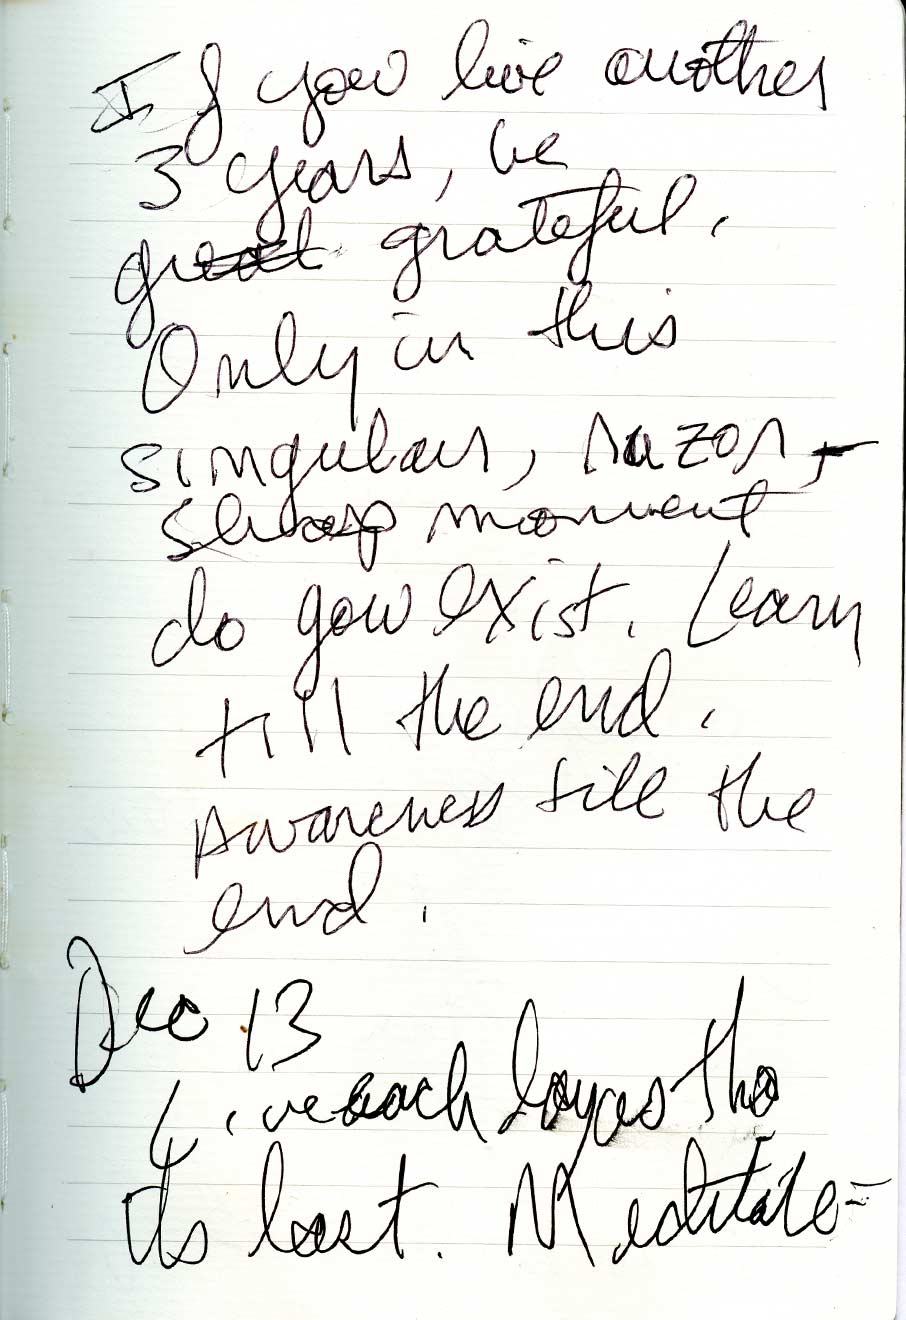 If you live another
3 years, be
great grateful.
Only in this
singular, razor-
sharp moment
do you exist. Learn
till the end.
Awareness till the
end.
Dec 13
Live each day as tho
its last. Meditate-